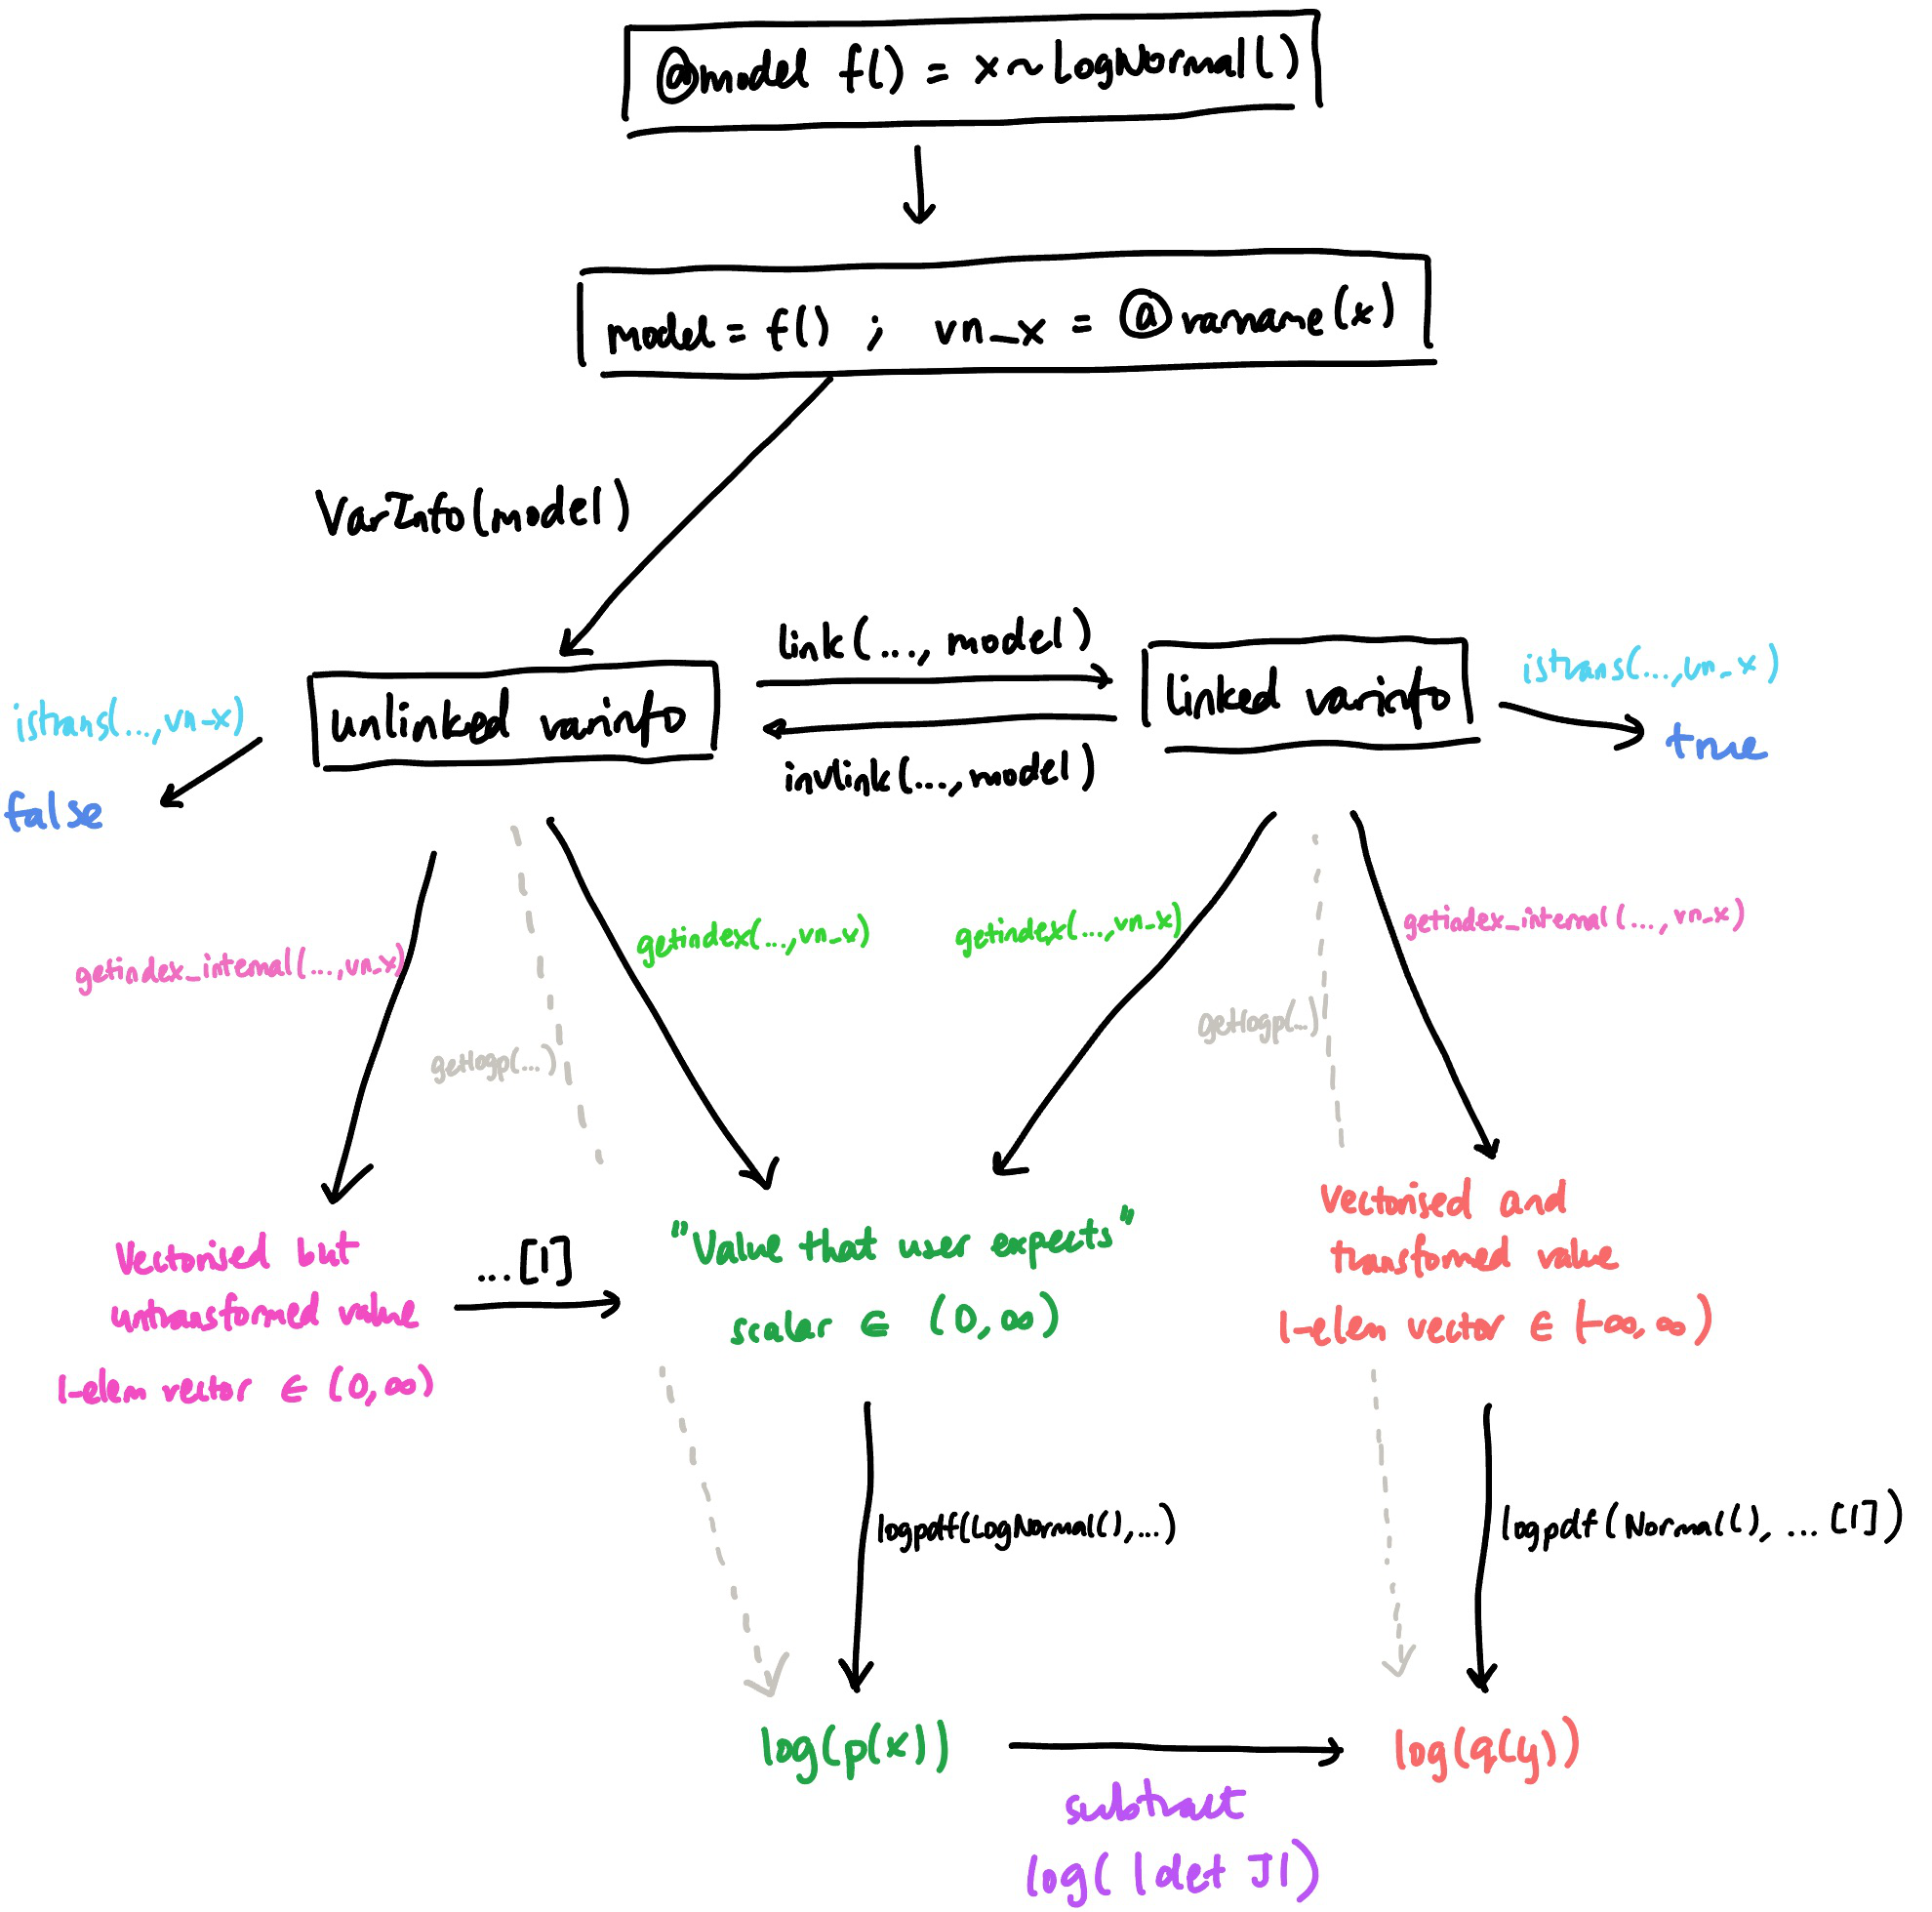 @model f() = x ~ LogNormal()
model = f() ; vn_x = @varname(x)
VarInfo(model)
link(..., model)
unlinked varinfo
linked varinfo
invlink(..., model)
istrans(..., vn_x)
false
istrans(..., vn_x)
true
getindex_internal(..., vn_x)
getlogp(...)
getindex(..., vn_x)
getindex(..., vn_x)
getlogp(...)
getindex_internal(..., vn_x)
Vectorised but
untransformed value
1-elem vector ∈ (0, ∞)
...[1]
"Value that user expects"
scalar ∈ (0, ∞)
Vectorised and
transformed value
1-elem vector ∈ (-∞, ∞)
logpdf(LogNormal(), ...)
logpdf(Normal(), ...[1])
log(p(x))
log(q(y))
subtract
log(|det J|)